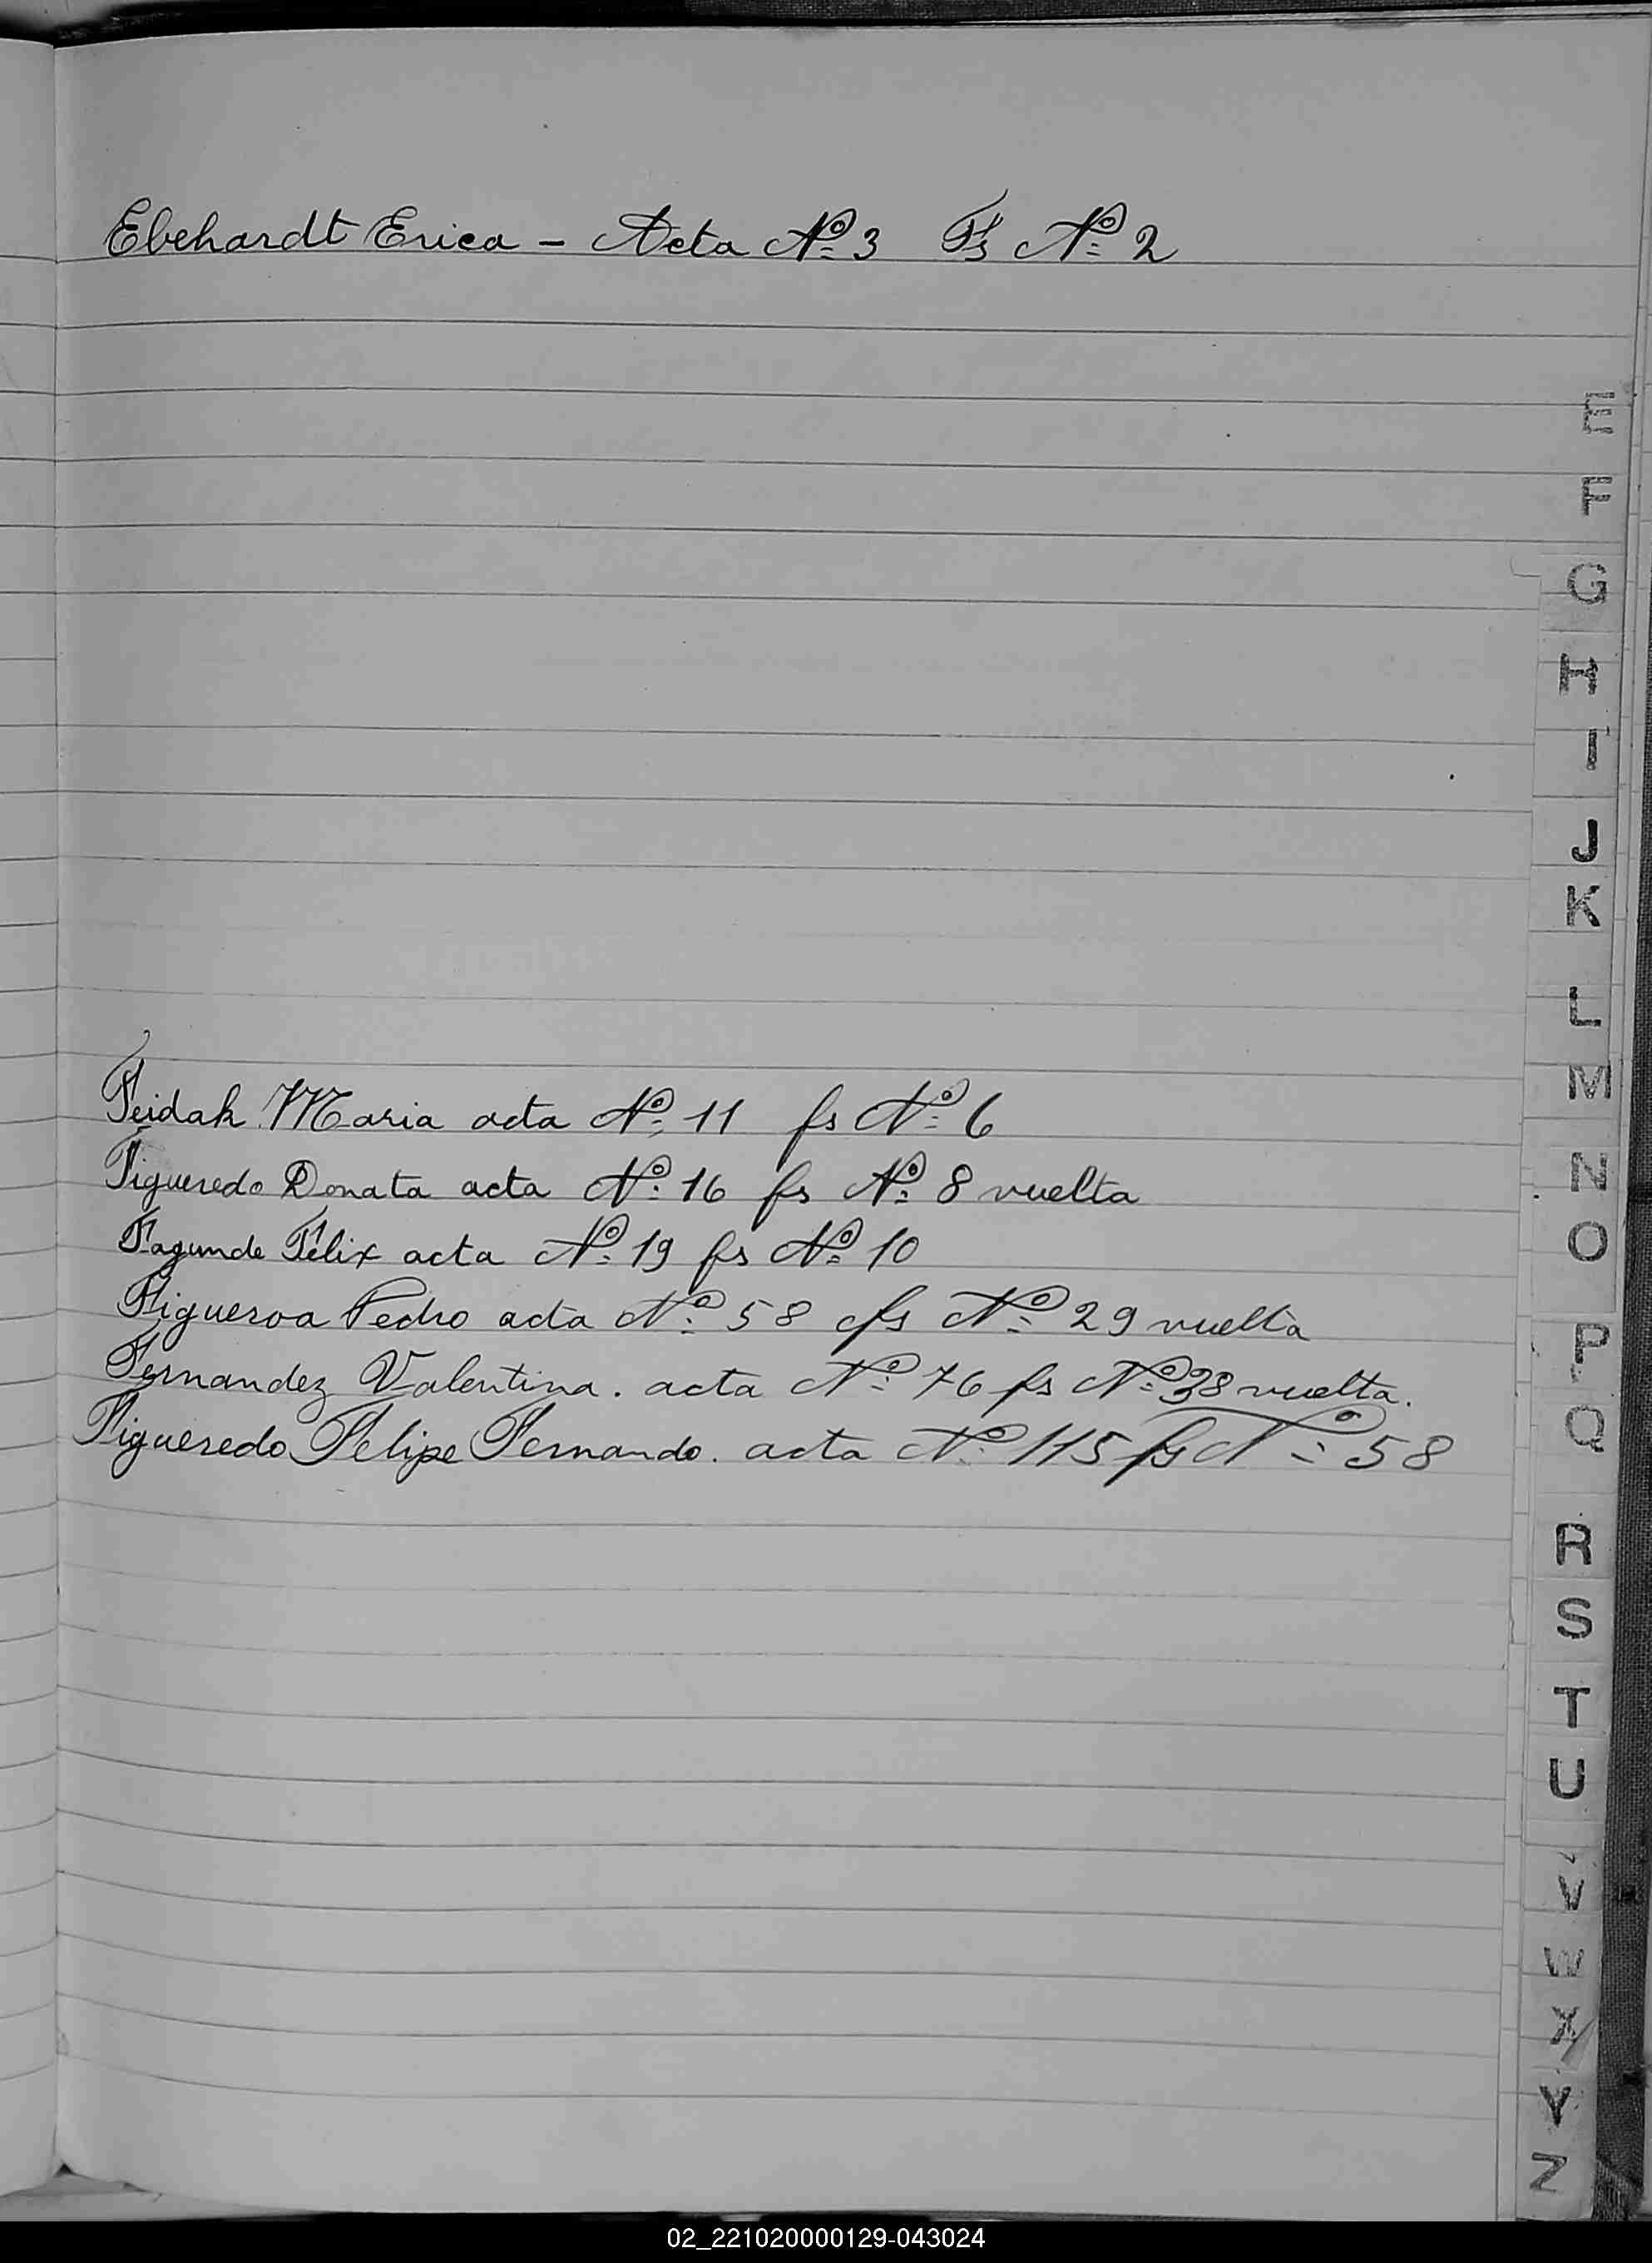 Ebehardt Erica – Acta Nº 3 Fs Nº 2
E
F
G
H
I
J
K
L
Feidah Maria acta Nº 11 fs Nº 6
M
Figueredo Donata acta Nº 16 fs Nº 8 vuelta
N
Fagunde Félix acta Nº 19 fs Nº 10
O
Figueroa Pedro acta Nº 58 fs Nº 29 vuelta
P
Fernandez Valentina. acta Nº 76 fs Nº 38 vuelta.
Q
Figueredo Felipe Fernando. acta Nº 115 fs Nº 58
R
S
T
U
V
W
X
Y
Z
02_221020000129-043024